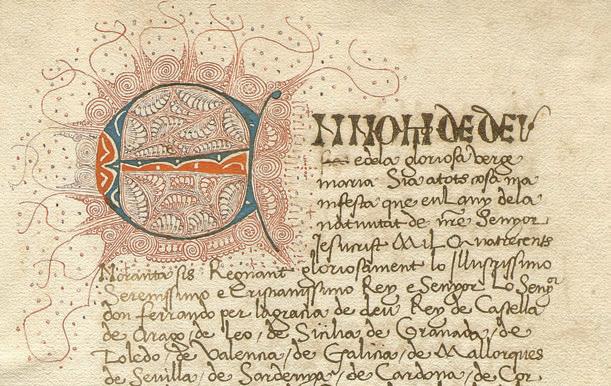 EN NOM DE DEU
e dela gloriosa verge
maria Sia atots cosa ma
nifesta que enl any dela
natiuitat de nre Senyor
Jesucrist MiL Quatrecents
Noranta sis Regnant gloriosament lo Illustrissimo
Serenissimo e Cristianissimo Rey e Senyor Lo Senyor
don ferrando per lagracia de deu Rey de Castella
de Arago de leo, de Sicilia de Granada, de
Toledo de Valencia, de Galicia, de Mallorques
de Seuilla, de Sardenya, de Cardona, de Cor